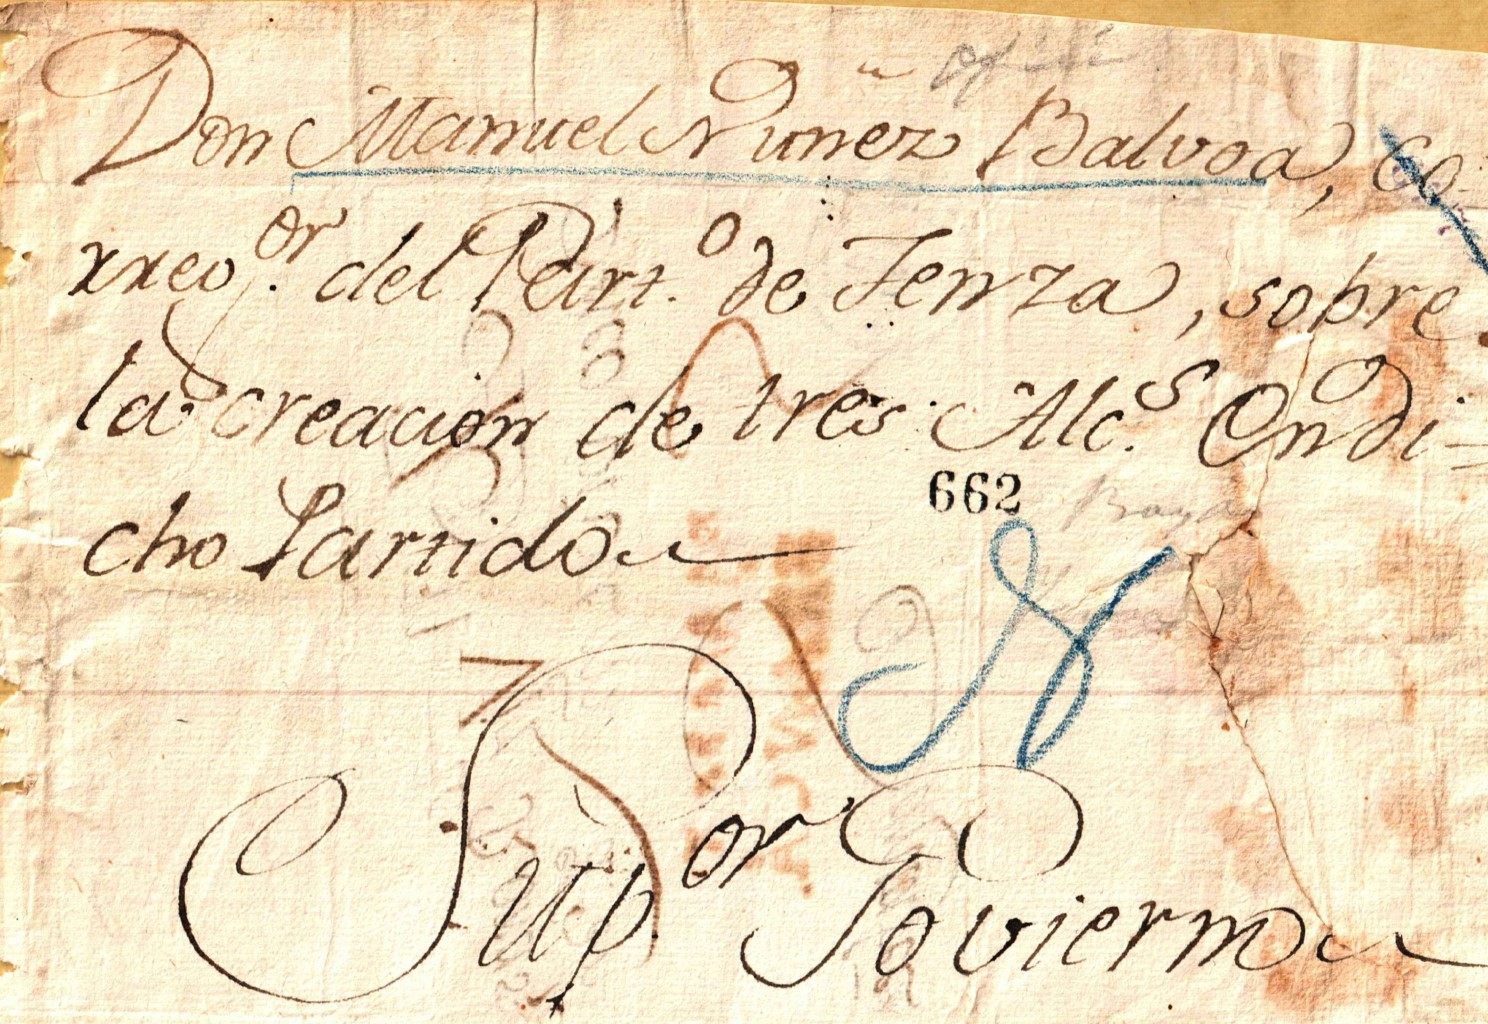 Don Manuel Nuñez Balvoa, Co-
rreg.or del Part.o de Tenza, sobre
la creacion de tres Alc.s En di-
cho Partido
662
Sup.or Govierno